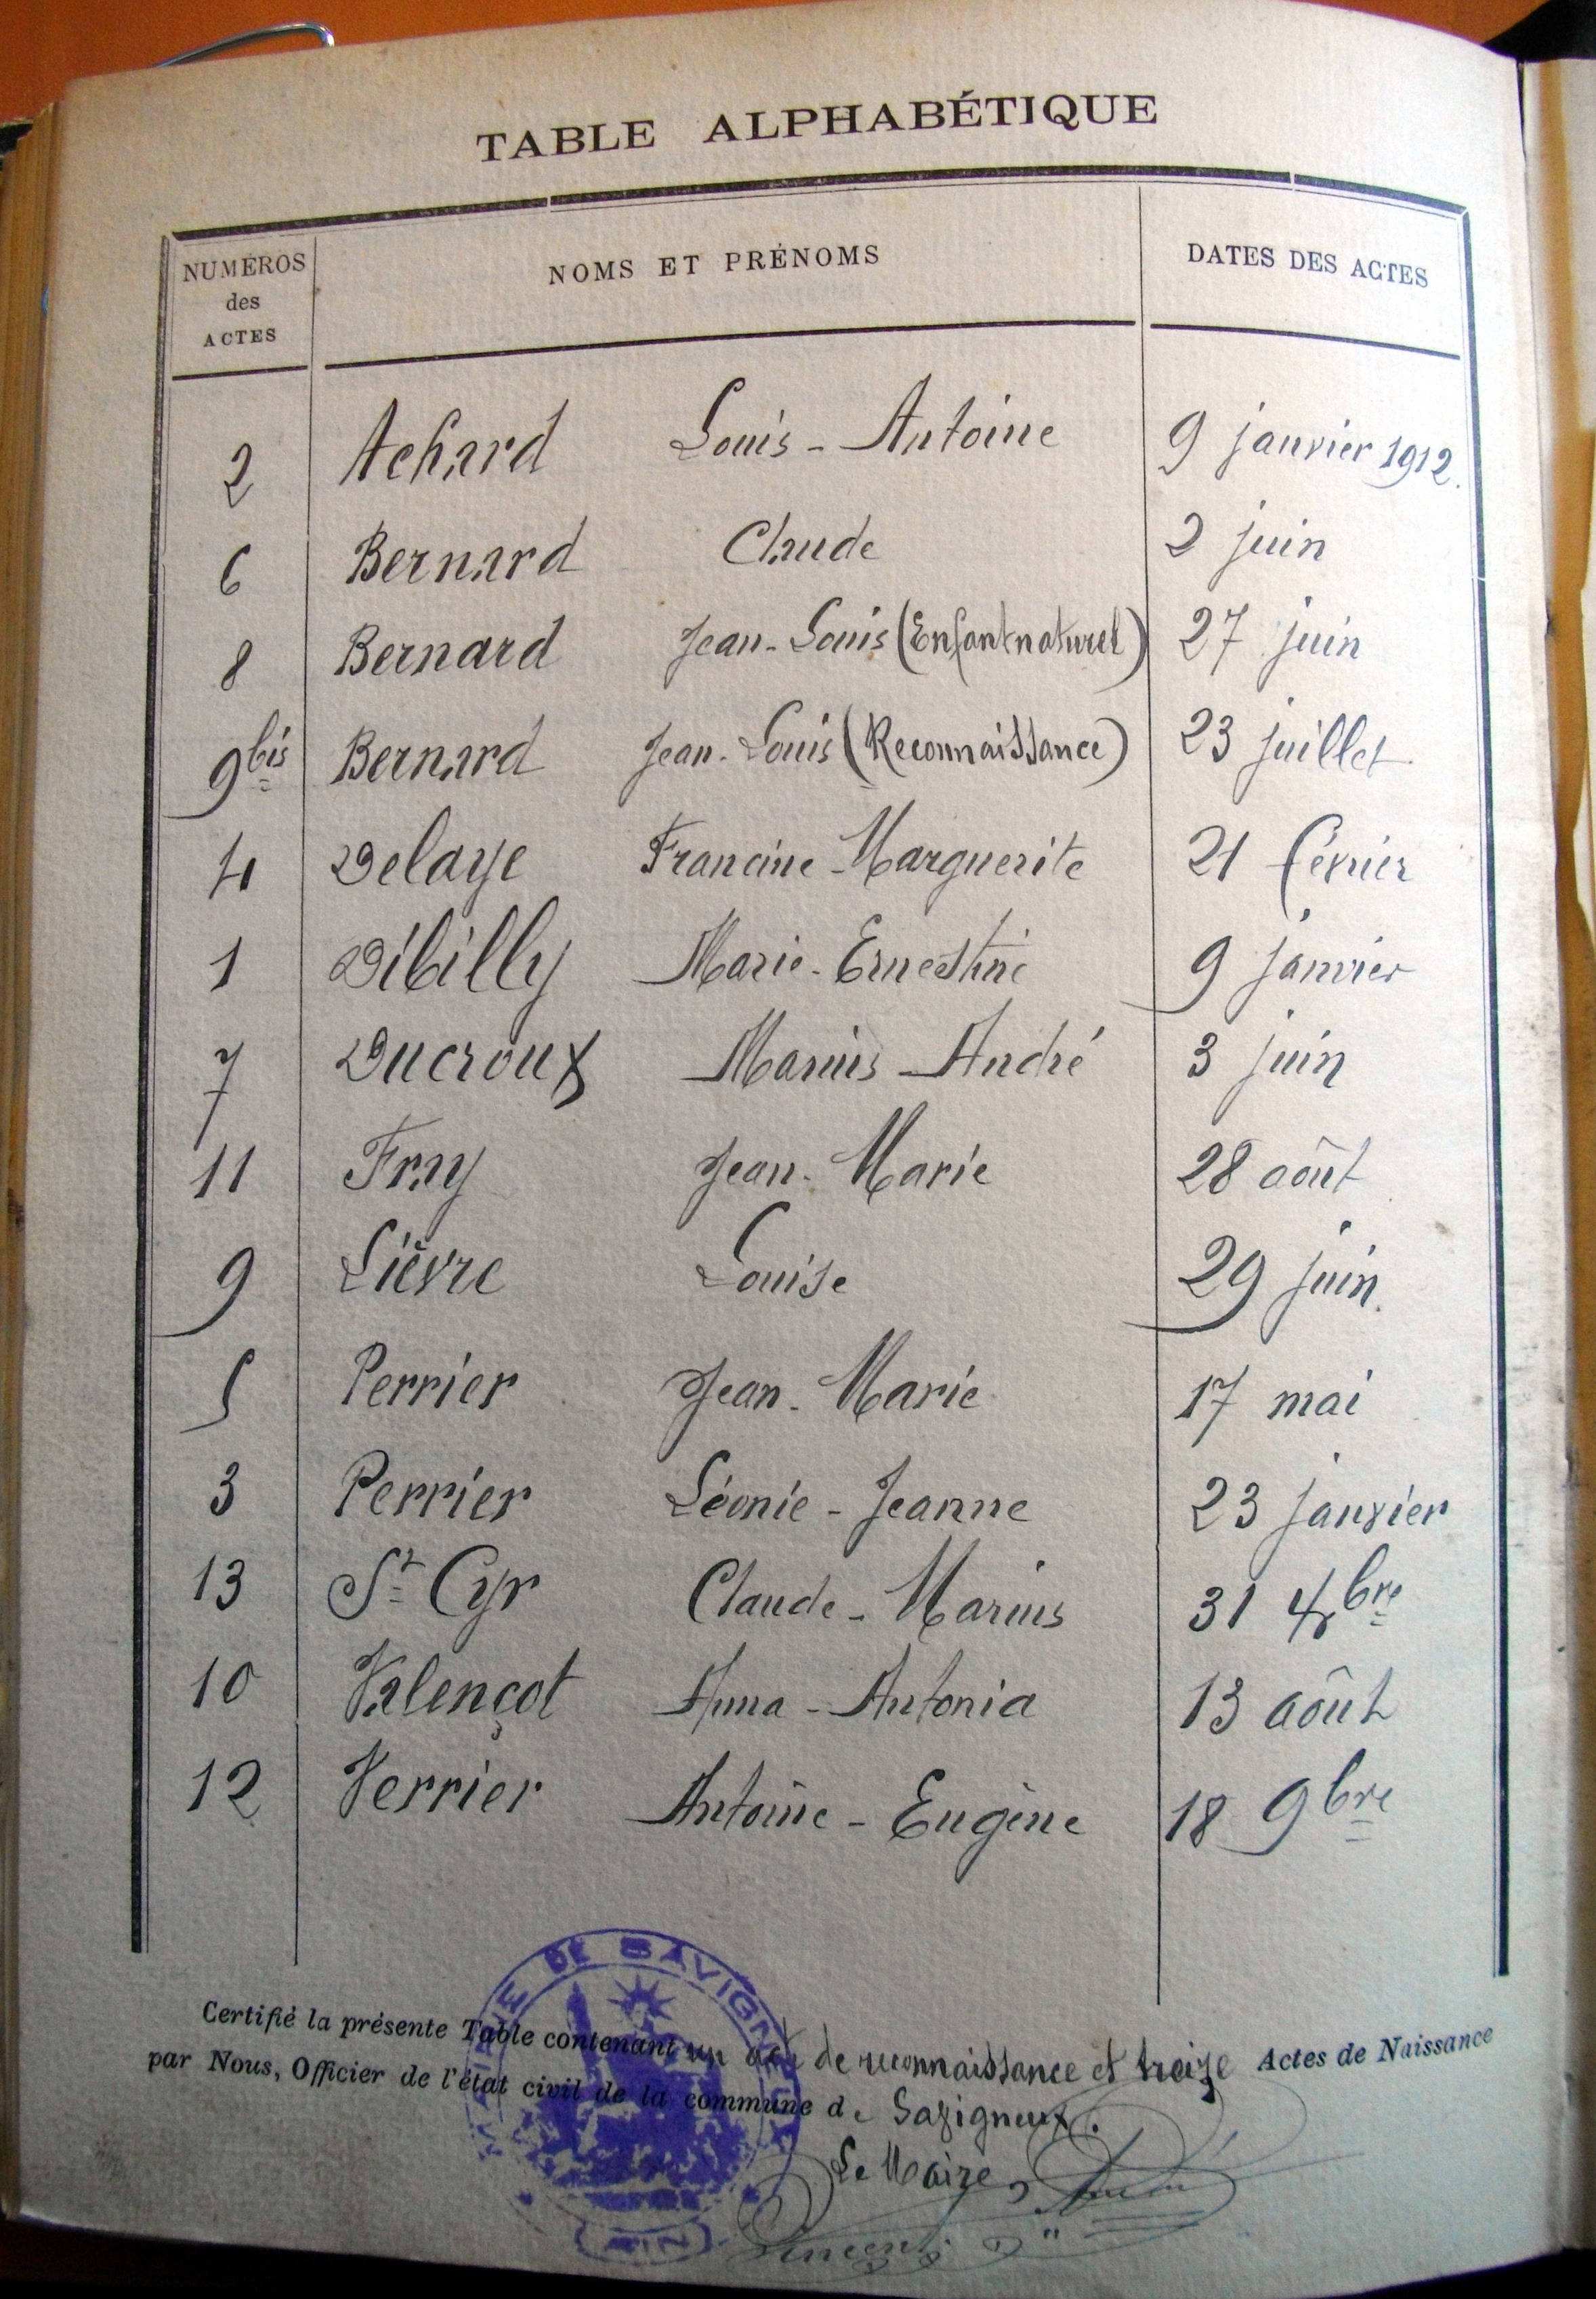 TABLE ALPHABÉTIQUE
NUMÉROS des ACTES
NOMS ET PRÉNOMS
DATES DES ACTES
2 Achard Louis - Antoine 9 janvier 1912.
6 Bernard Claude 2 juin
8 Bernard Jean - Louis (Enfant naturel) 27 juin
9bis Bernard Jean - Louis (Reconnaissance) 23 juillet
4 Delaye Francine - Marguerite 21 février
1 Dibilly Marie - Ernestine 9 janvier
7 Ducroux Marius - André 3 juin
11 Fray Jean - Marie 28 août
9 Lièvre Louise 29 juin.
5 Perrier Jean - Marie 17 mai
3 Perrier Léonie - Jeanne 23 janvier
13 St Cyr Claude - Marius 31 Xbre
10 Valençot Anna - Antonia 13 août
12 Verrier Antoine - Eugène 18 9bre
Certifié la présente Table contenant un acte de reconnaissance et treize Actes de Naissance
par Nous, Officier de l'état civil de la commune de Savigneux.
Le Maire,
MAIRIE DE SAVIGNEUX
(AIN)